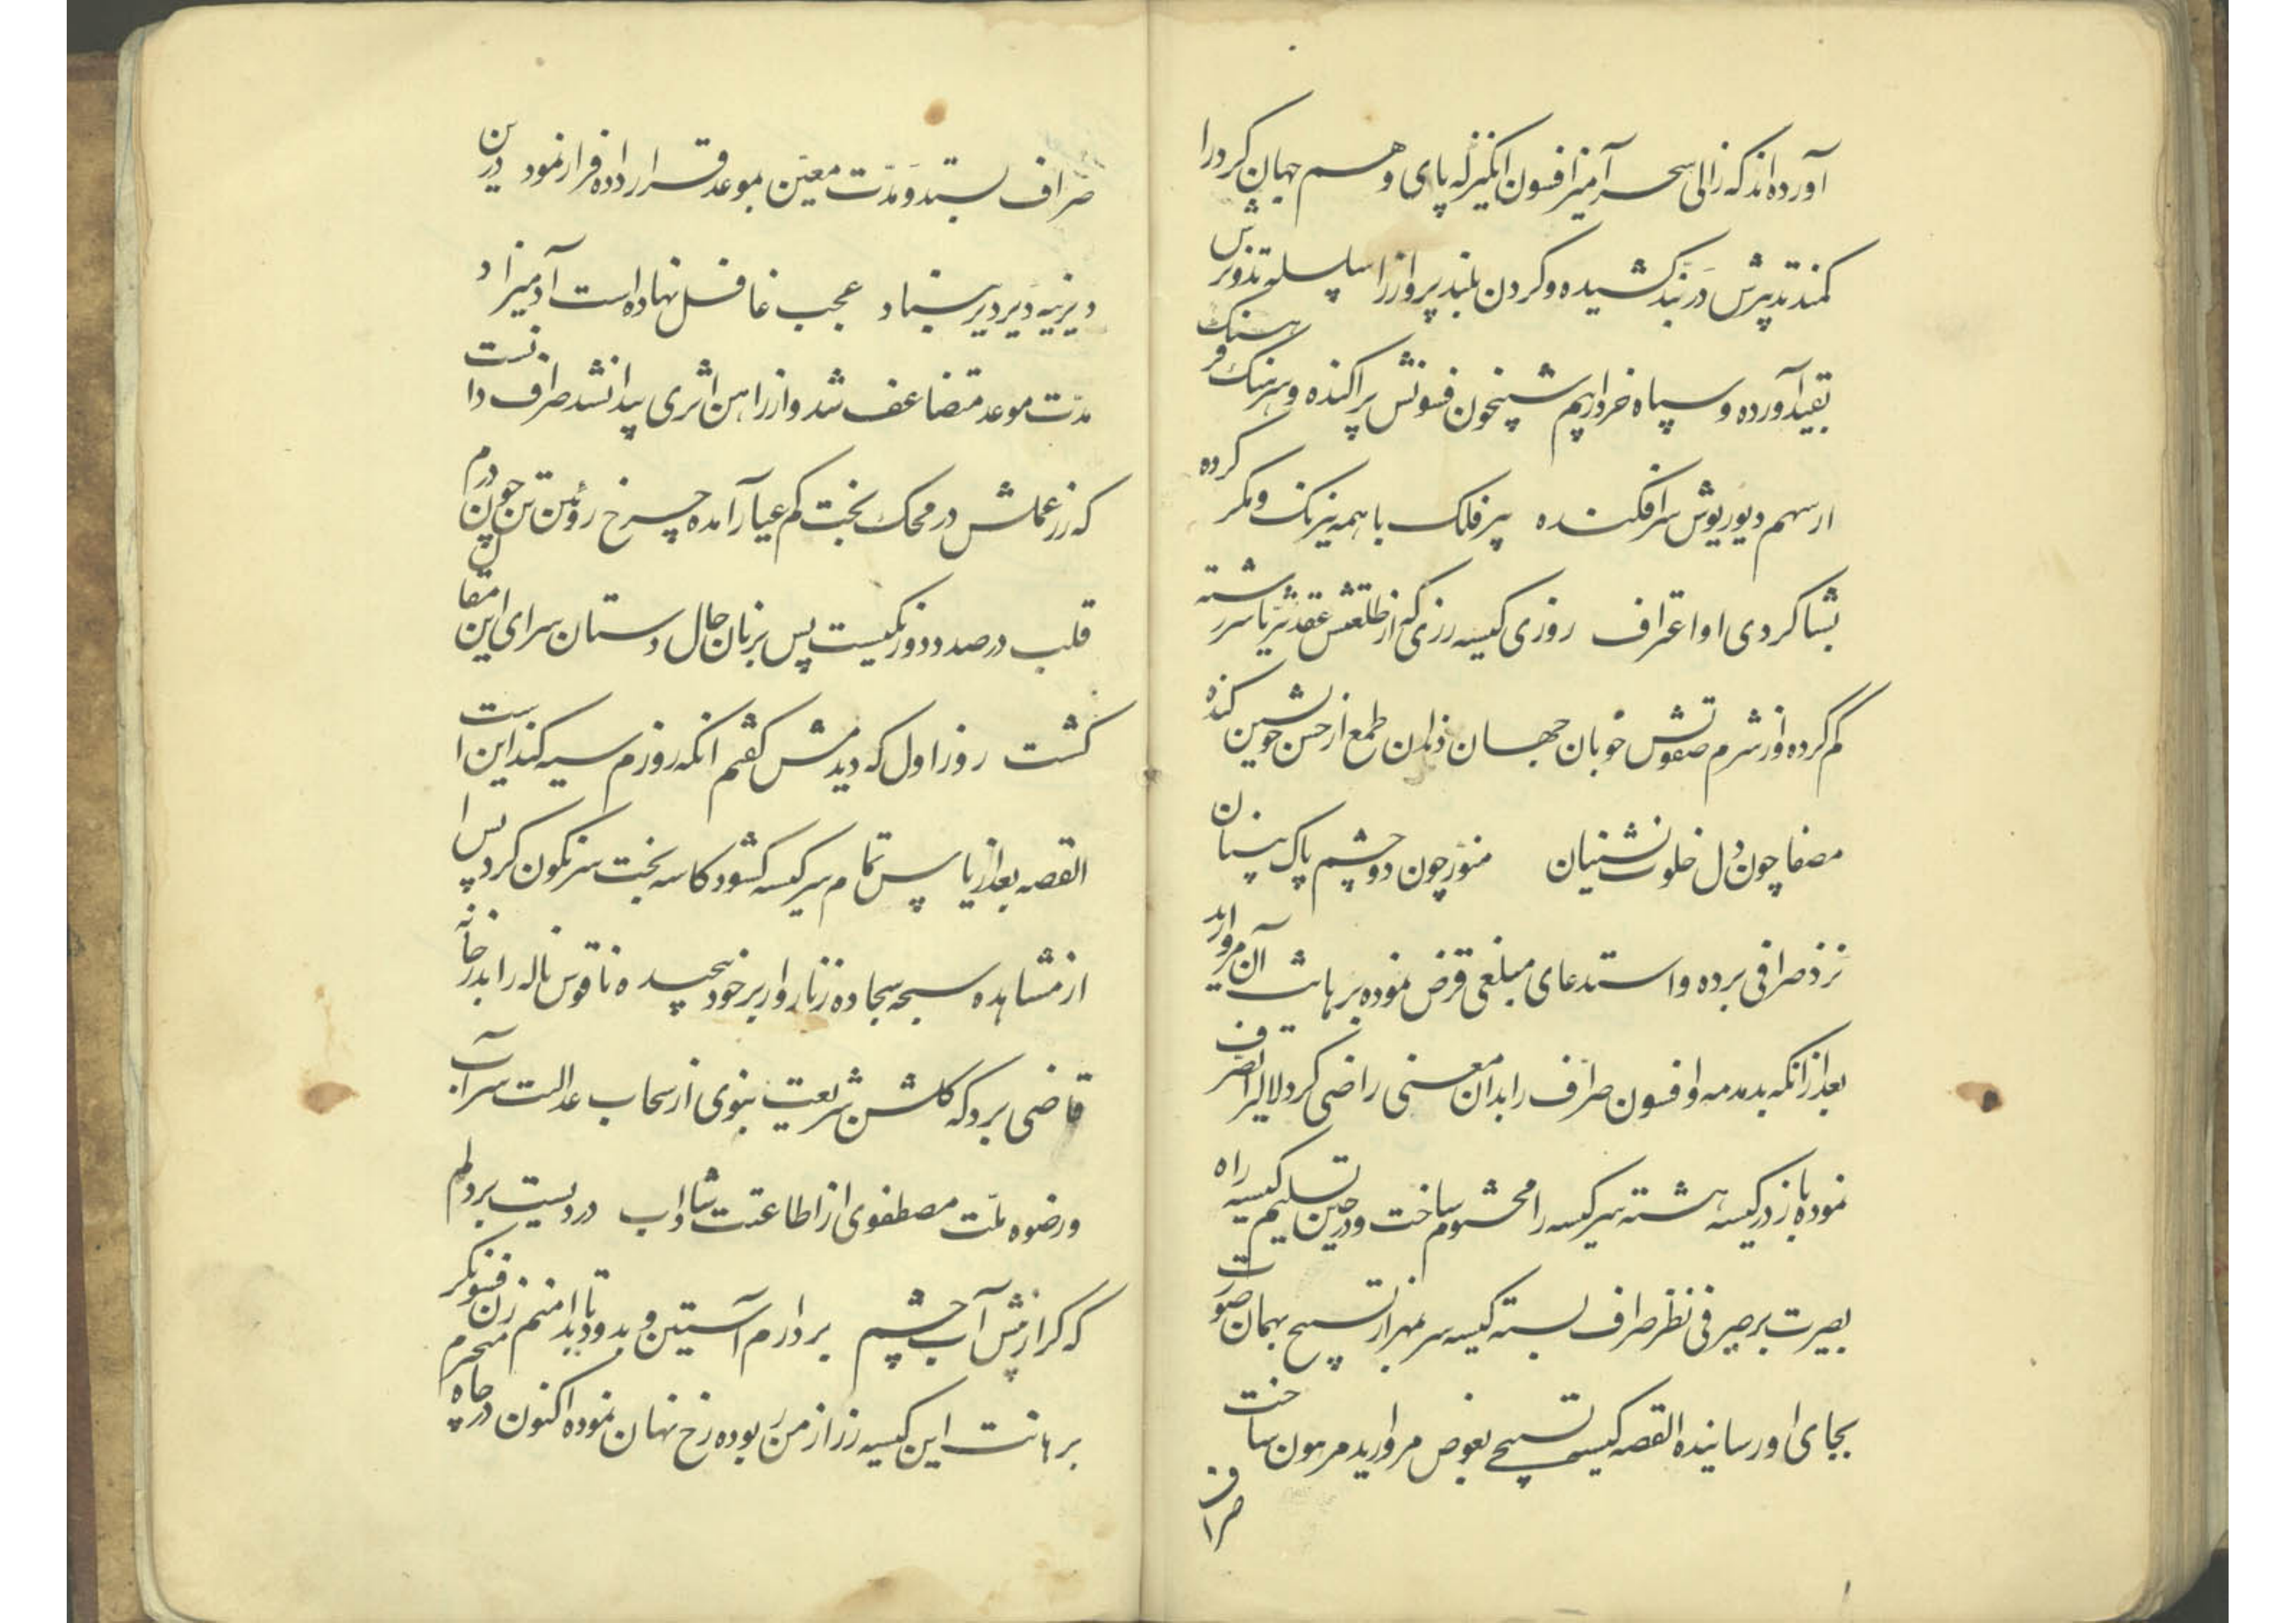 آورده‌اند که زالی سحر آمیز افسون انگیز که پای وهم جهان کرد را
کمند تدبیرش در بند کشیده و کردن بلند پرواز را سلسله تذویرش
بقید آورده و سپاه خرد از بیم شبیخون فسونش پراکنده و سرهنک فرهنک
از سهم دیو ریوش سرافکنده پیر فلک با همه نیرنک و مکر کرده
بشاکردی او اعتراف روزی کیسه زری که از طلعتش عقد ثریا سررشته
کم کرده و از شرم صفوتش خوبان جهان دندان طمع از حسن خویشتن کنده
مصفا چون دل خلوت نشینان منور چون دو چشم پاک بینان
نزد صرافی برده و استدعای مبلغی قرض نموده برهانت آن مروارید
بعد از انکه بدمدمه و افسون صراف را بدان معنی راضی کرد لالی را تصرف
نموده باز در کیسه هشته سر کیسه را مختوم ساخت و در حین تسلیم کیسه راه
بصیرت بر صیرفی نظر صراف بسته کیسه سر بمهر از تسبیح بهمان صورت
بجای او رسانیده القصه کیسه تسبیحی بعوض مروارید مرهون ساخت
صراف
صراف بستد و مدت معین بموعد قرار داده فرار نمود درین
دیرینه دیر دیر بنیاد عجب غافل نهاده است آدمیزاد
مدت موعد متضاعف شد و از راهن اثری پیدا نشد صراف دانست
که زر عملش در محک بخت کم عیار آمده چرخ روئین تن چون درم
قلب در صدد دورنکیست پس بزبان حال دستان سرای این مقال
کشت روز اول که دیدمش کفتم انکه روزم سیه کند این است
القصه بعد از یاس تمام سر کیسه کشود کاسه بخت سرنکون کرد پس ا
از مشاهده سبحه سجاده زنار وار بر خود پیچیده ناقوس ناله را بدر خانه
قاضی برد که کلشن شریعت نبوی از سحاب عدالت سراب
و رضوه ملت مصطفوی از اطاعتت شاداب دردیست بر دلم
که کر از پیش آب چشم بردارم آستین و بدود تا بدامنم زن فسونکر محرم
برهانت این کیسه زر از من ربوده رخ نهان نموده اکنون در چاه